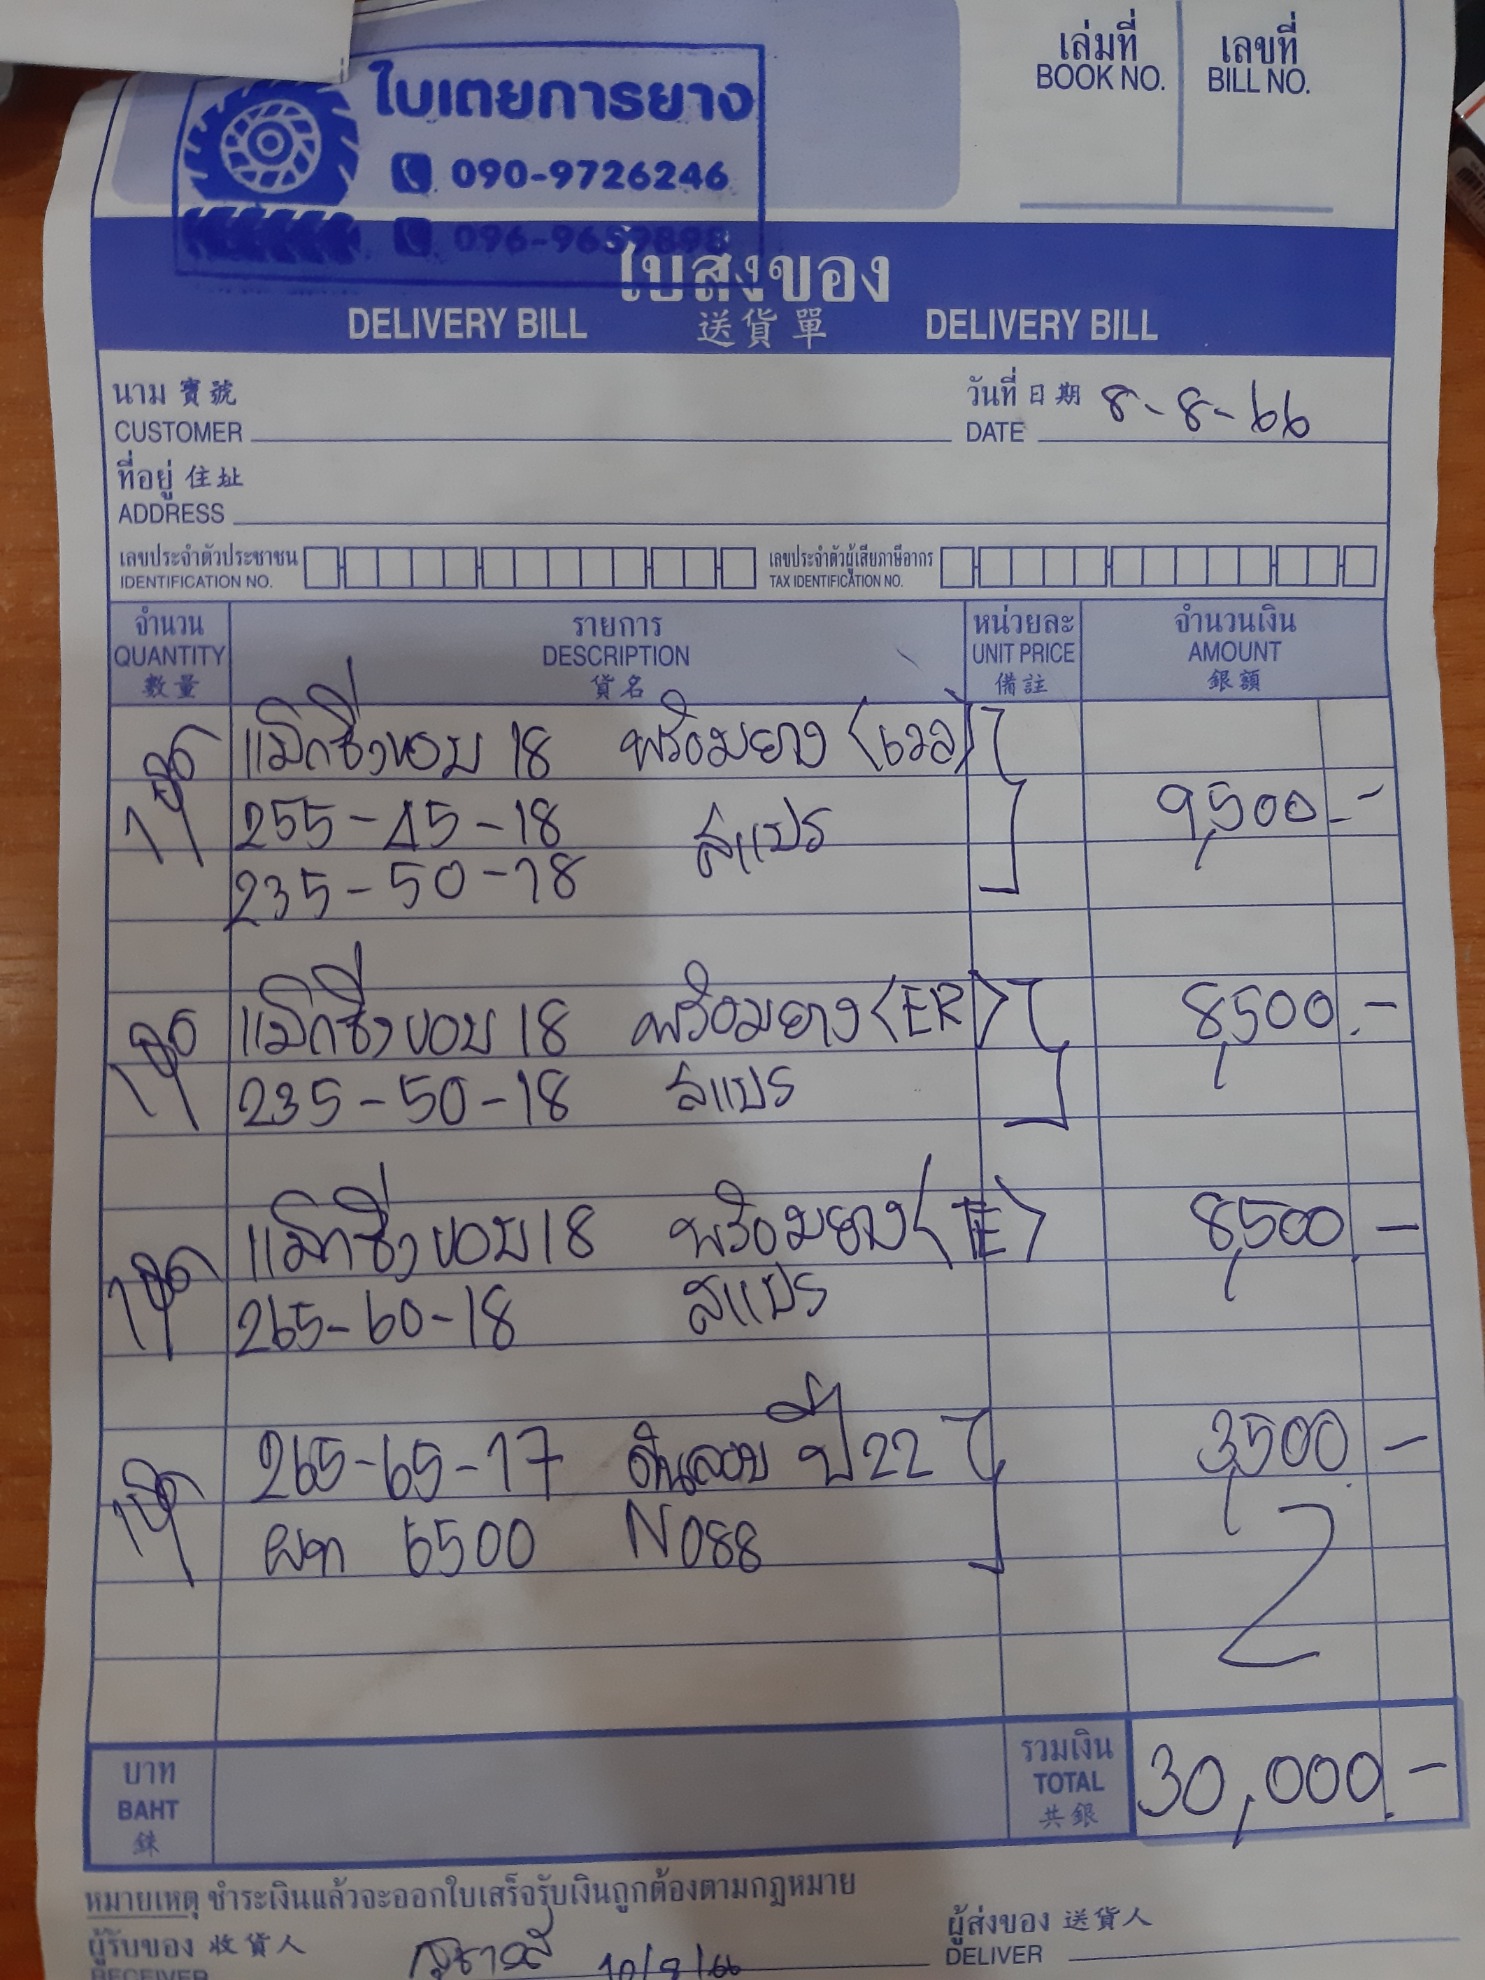 ใบเตยการยาง
090-9726246
096-9659898
เล่มที่
BOOK NO.
เลขที่
BILL NO.
ใบส่งของ
DELIVERY BILL 送貨單 DELIVERY BILL
นาม 寶號
CUSTOMER
วันที่ 日期 8-8-66
DATE
ที่อยู่ 住址
ADDRESS
เลขประจำตัวประชาชน
IDENTIFICATION NO.
เลขประจำตัวผู้เสียภาษีอากร
TAX IDENTIFICATION NO.
จำนวน รายการ หน่วยละ จำนวนเงิน
QUANTITY DESCRIPTION UNIT PRICE AMOUNT
數量 貨名 備註 銀額
1 ชุด แม็กซิ่งขอบ 18 พร้อมยาง (เวล)
255-45-18 สแปร 9,500.-
235-50-18
1 ชุด แม็กซิ่งขอบ 18 พร้อมยาง <ER> 8,500.-
235-50-18 สแปร
1 ชุด แม็กซิ่งขอบ 18 พร้อมยาง <TE> 8,500.-
265-60-18 สแปร
1 ชุด 265-65-17 ดันลอป ปี 22 3,500.-
6500 N088
บาท
BAHT
銖
รวมเงิน
TOTAL
共銀
30,000.-
หมายเหตุ ชำระเงินแล้วจะออกใบเสร็จรับเงินถูกต้องตามกฎหมาย
ผู้รับของ 收貨人
RECEIVER 10/8/66
ผู้ส่งของ 送貨人
DELIVER